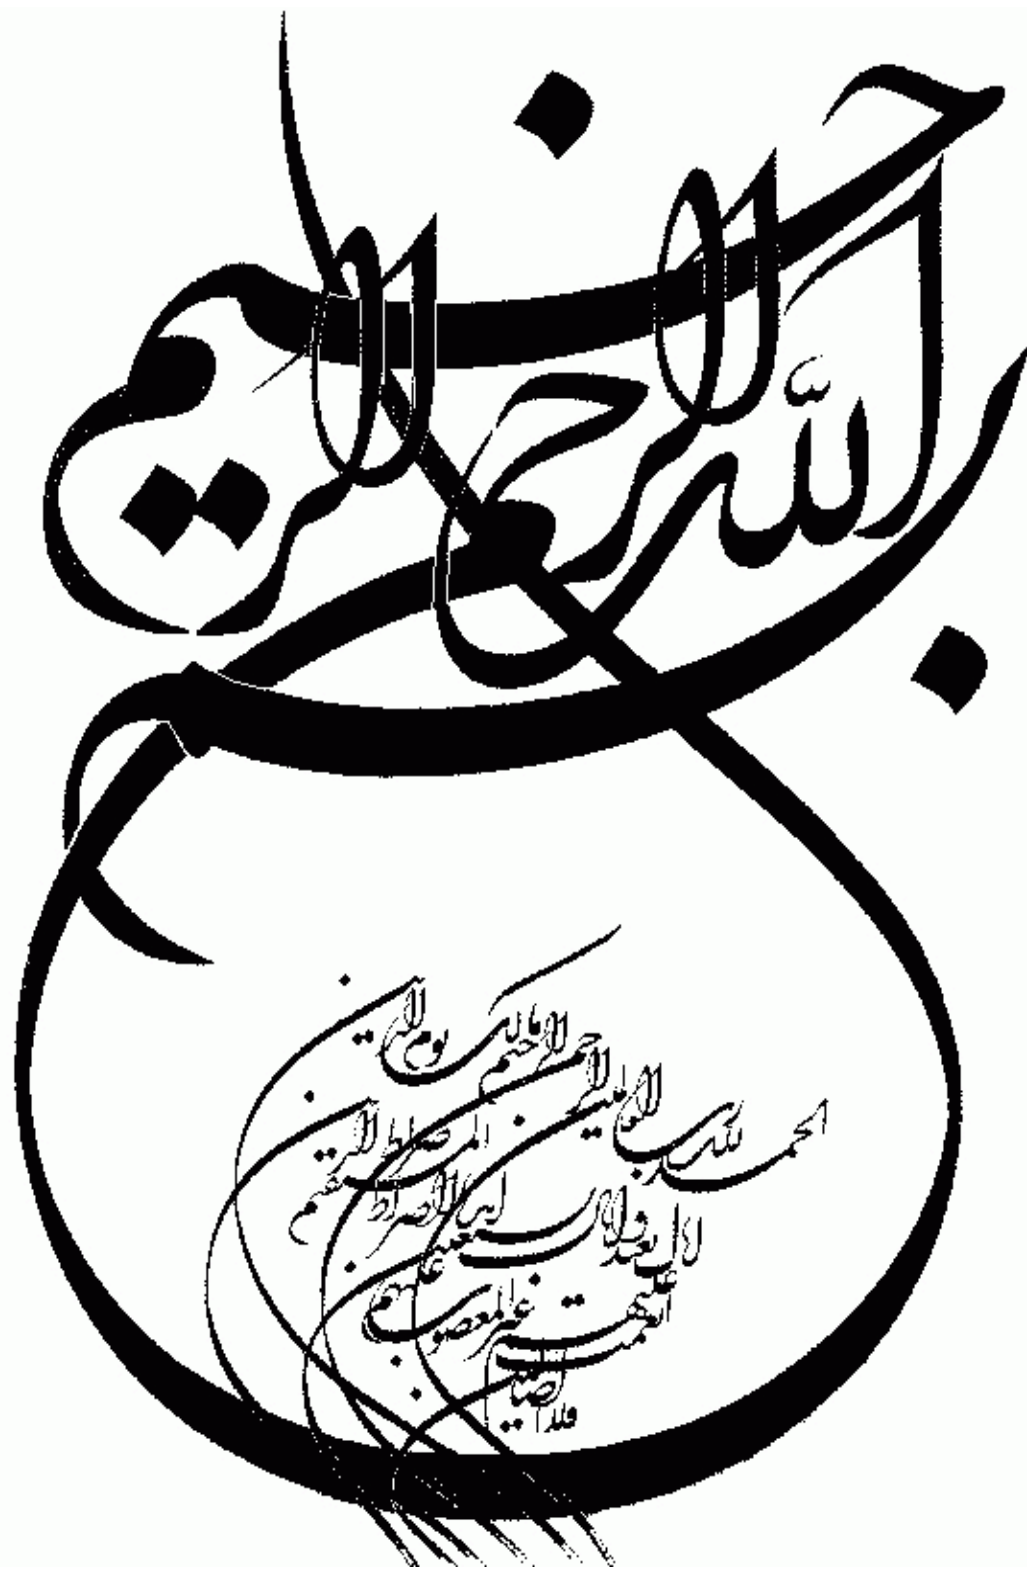 بسم الله الرحمن الرحيم
الحمد لله رب العالمين
الرحمن الرحيم
مالك يوم الدين
اياك نعبد واياك نستعين
اهدنا الصراط المستقيم
صراط الذين انعمت عليهم
غير المغضوب عليهم
ولا الضالين